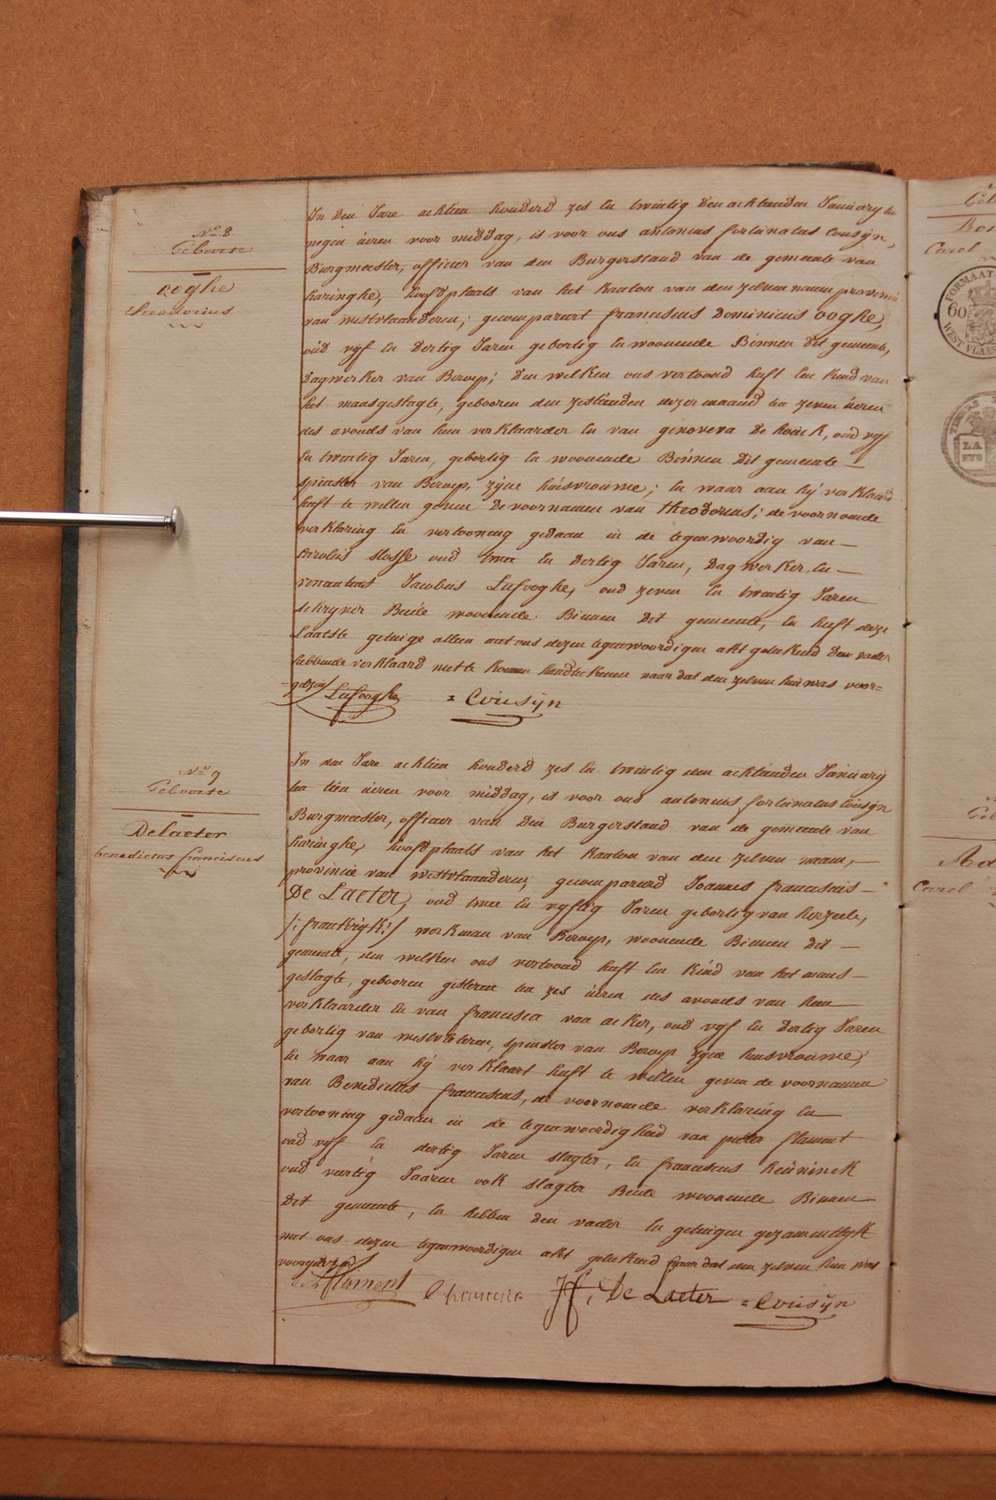 N.º 8.
Geboorte
ooghe
theodorius
In den Jare achtien honderd zes en twintig den achtienden January ten
negen üeren voor middag, is voor ons antonius fortunatus Cousÿn,
Burgmeester, officier van den Burgerstand van de gemeente van
haringhe, hoofdplaats van het kanton van den zelven naam provincie
van westvlaanderen; gecompareert franciscus Dominicus ooghe,
oüd vyf en Dertig Jaren gebortig en woonende Binnen Dit gemeente,
Dagwerker van Beroep; Den welken ons vertoond heeft een kind van
het maasgeslagte, gebooren den zestienden dezer maand ten zeven üeren
des avonds van hem verklaarder en van genoveva De houck, oud vyf
en twintig Jaren, gebortig en woonende Binnen Dit gemeente
spinster van Beroep, zÿne huisvrouwe; en waar aan hÿ verklaard
heeft te willen geven De voornamen van theodorius; de voornoemde
verklaring en vertooning gedaan in de tegenwoordig van
Carolus slosse oud twee en Dertig Jaren, Dagwerker en
venantius Jacobus Lafooghe, oud zeven en twintig Jaren
schryver Beide woonende Binnen Dit gemeente, en heeft deze
Laatste getuige alleen met ons dezen tegenwoordigen akt geteekend Den vader
hebbende verklaard niet te konnen handteekenen naar dat den zelven hun was voor=
gelezen Lafooghe = Cousÿn
N.º 9
Geboorte
Delaeter
benedictus franciscus
In den Jare achtien honderd zes en twintig den achtienden January
ten tien üeren voor middag, is voor ons antonius fortunatus Cousÿn
Burgmeester, officier van Den Burgerstand van de gemeente van
haringhe, hoofdplaats van het kanton van den zelven naam,
provincie van westvlaanderen; gecompareerd Joannes franciscus
De Laeter, oud twee en vyftig Jaren gebortig van herzeele,
/:frankryk:/ werkman van Beroep, woonende Binnen Dit
gemeente, den welken ons vertoond heeft een kind van het mans
geslagte, gebooren gisteren ten zes üeren des avonds van hem
verklaarder en van francisca van acker, oud vyf en Dertig Jaren
gebortig van westvleteren, spinster van Beroep zÿne huisvrouwe;
en waar aan hÿ verklaart heeft te willen geven de voornamen
van Benedictus franciscus, de voornoemde verklaring en
vertooning gedaen in de tegenwoordigheid van pieter flament
oud vyf en dertig Jaren slagter, en franciscus keüninck
oud veertig Jaaren ook slagter Beide woonende Binnen
Dit gemeente, en hebben den vader en getuigen gezamentlyk
met ons dezen tegenwoordigen akt geteekend naar dat den zelven hun was
voorgelezen
flament francisco JF, De Laeter = Cousÿn
FORMAAT
60
WEST VLA
LA
Carel
Ad
Carel